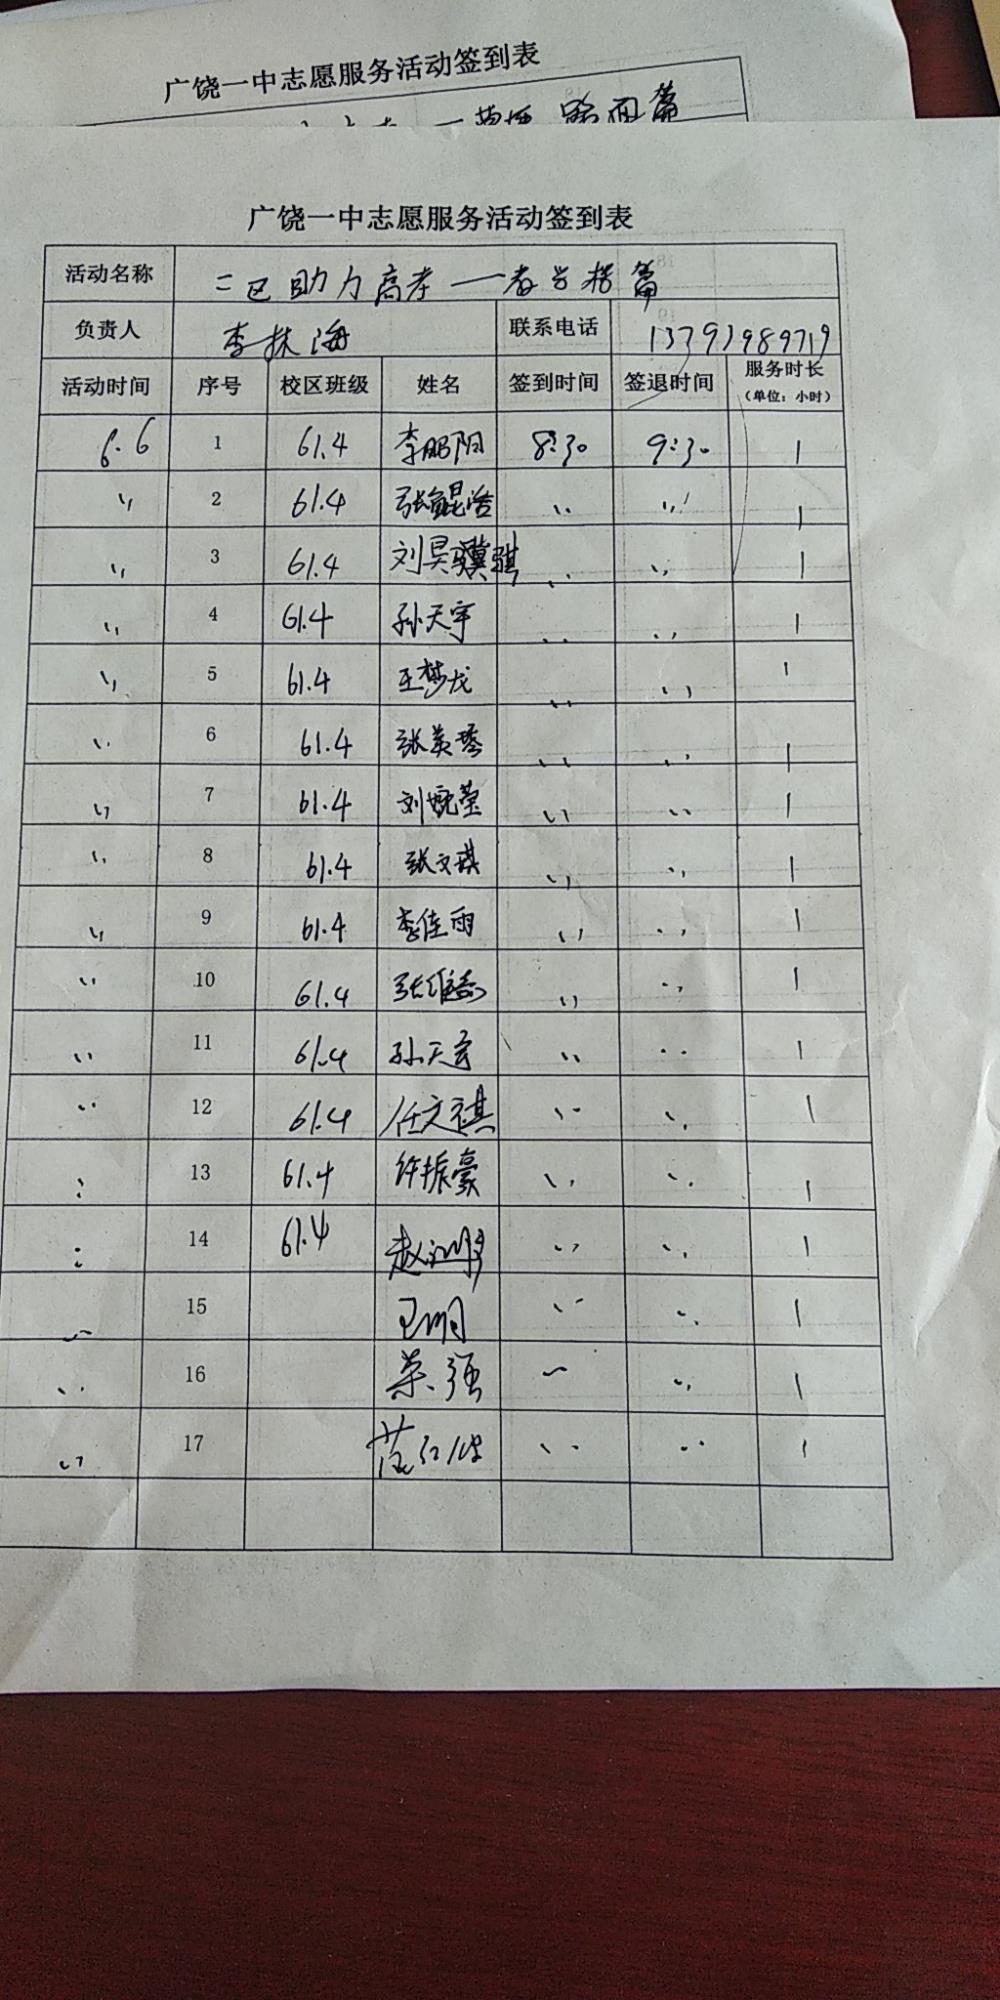 广饶一中志愿服务活动签到表
篇
广饶一中志愿服务活动签到表
活动名称 二区助力高考一教学楼篇
负责人 李振海 联系电话
活动时间 序号 校区班级 姓名 签到时间 签退时间 服务时长
(单位:小时)
6.6 1 61.4 李鹏阳 8:30 9:30 1
〃 2 61.4 张鲲浩 〃 〃 1
〃 3 61.4 刘昊骥骐 〃 〃 1
〃 4 61.4 孙天宇 〃 〃 1
〃 5 61.4 王梦龙 〃 〃 1
〃 6 61.4 张美琴 〃 〃 1
〃 7 61.4 刘婉莹 〃 〃 1
〃 8 61.4 张文琪 〃 〃 1
〃 9 61.4 李佳雨 〃 〃 1
〃 10 61.4 〃 〃 1
〃 11 61.4 〃 〃 1
〃 12 61.4 任文祺 〃 〃 1
〃 13 61.4 许振豪 〃 〃 1
〃 14 61.4 〃 〃 1
〃 15 〃 〃 1
〃 16 荣强 〃 〃 1
〃 17 〃 〃 1